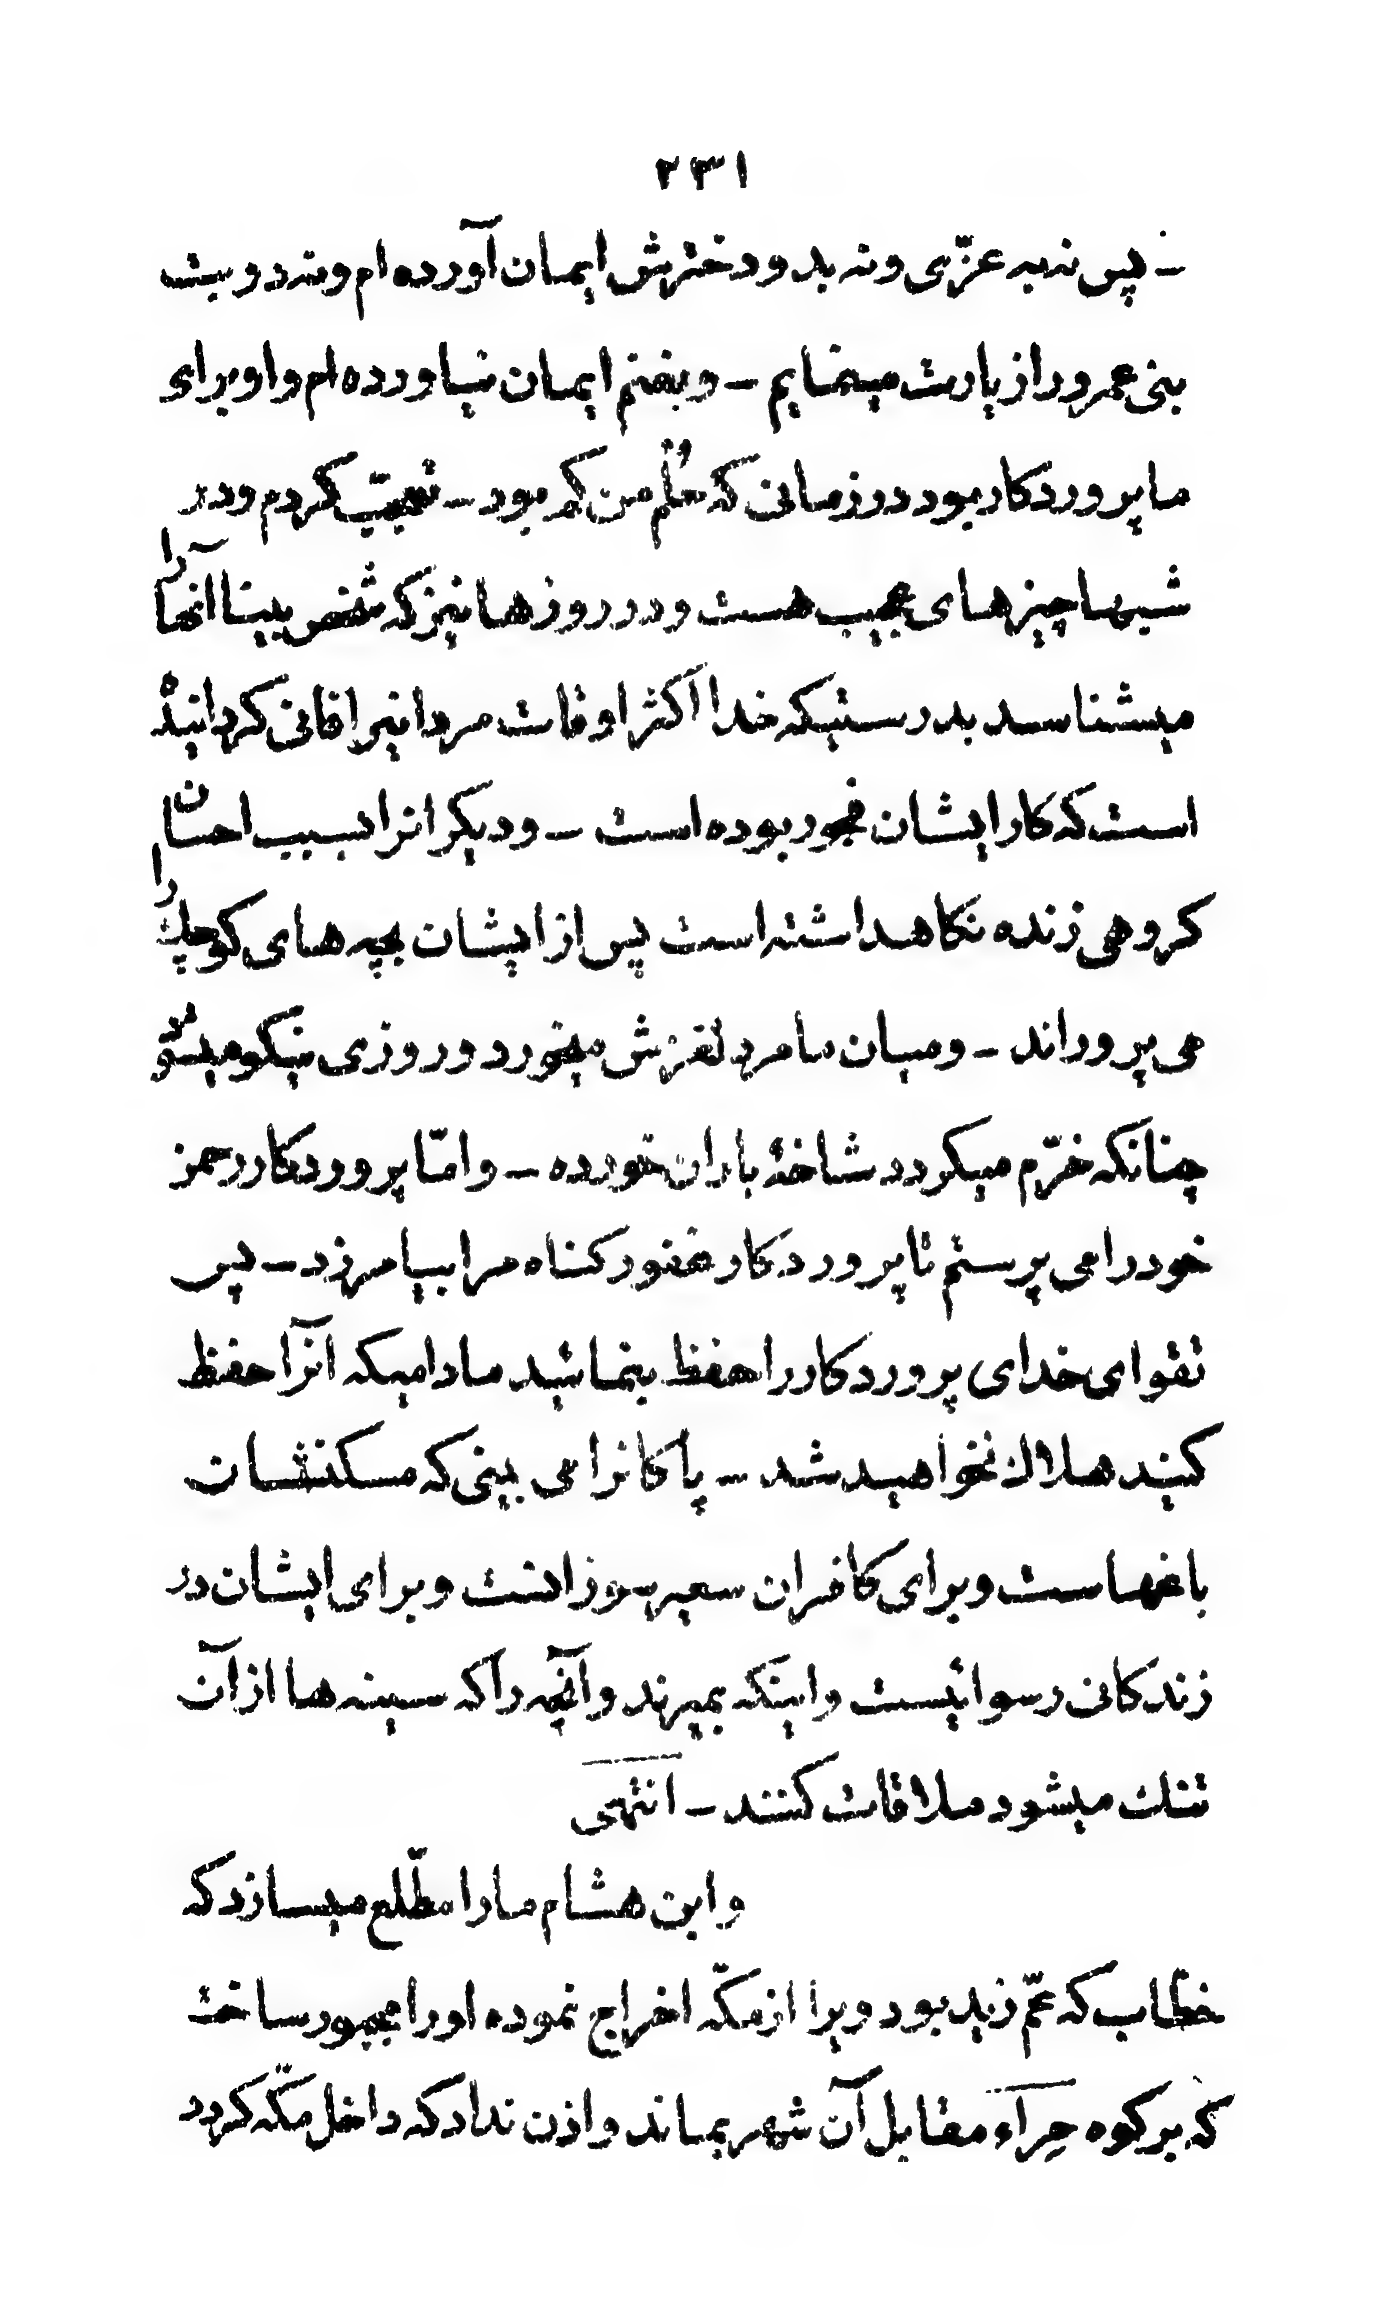 ۲۳۱
- پس نه به عزّی و نه بدو دخترش ایمان آورده ام و نه دو بت
بنی عمرو را زیارت مینمایم - و بغنم ایمان نیاورده ام و او برای
ما پروردکار بود در زمانی که حُلُم من کم بود - تعجّب کردم و در
شبها چیزهای عجیب هست و در روزها نیز که شخص بینا آنها را
میشناسد بدرستیکه خدا اکثر اوقات مردانیرا فانی کردانیده
است که کار ایشان فجور بوده است - و دیکرانرا بسبب احسان
کروهی زنده نکاهداشته است پس از ایشان بچه های کوچک را
می پروراند - و میان ما مرد لغزش میخورد و روزی نیکو میشود
چنانکه خرّم میکردد شاخهٔ باران خورده - و امّا پروردکار رحمن
خود را می پرستم تا پروردکار غفور کناه مرا بیامرزد - پس
تقوای خدای پروردکار را حفظ بنمائید مادامیکه آنرا حفظ
کنید هلاک نخواهید شد - پاکانرا می بینی که مسکنشان
باغهاست و برای کافران سعیر سوزانست و برای ایشان در
زندکانی رسوائیست و اینکه بمیرند و آنچه را که سینه ها از آن
تنک میشود ملاقات کنند - انتهی
و ابن هشام ما را مطّلع میسازد که
خطّاب که عمّ زید بود ویرا از مکّه اخراج نموده او را مجبور ساخت
که بر کوه حِرَآء مقابل آن شهر بماند و اذن نداد که داخل مکّه کردد